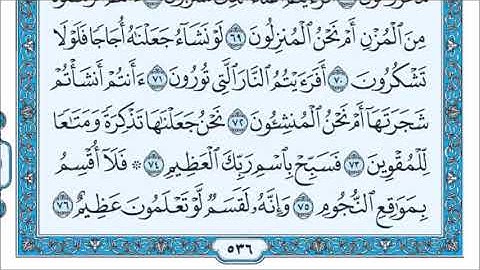 مِنَ ٱلْمُزْنِ أَمْ نَحْنُ ٱلْمُنزِلُونَ ٦٩ لَوْ نَشَآءُ جَعَلْنَٰهُ أُجَاجًا فَلَوْلَا
تَشْكُرُونَ ٧٠ أَفَرَءَيْتُمُ ٱلنَّارَ ٱلَّتِى تُورُونَ ٧١ ءَأَنتُمْ أَنشَأْتُمْ
شَجَرَتَهَآ أَمْ نَحْنُ ٱلْمُنشِـُٔونَ ٧٢ نَحْنُ جَعَلْنَٰهَا تَذْكِرَةً وَمَتَٰعًا
لِّلْمُقْوِينَ ٧٣ فَسَبِّحْ بِٱسْمِ رَبِّكَ ٱلْعَظِيمِ ٧٤ ۞ فَلَآ أُقْسِمُ
بِمَوَٰقِعِ ٱلنُّجُومِ ٧٥ وَإِنَّهُۥ لَقَسَمٌ لَّوْ تَعْلَمُونَ عَظِيمٌ ٧٦
٥٣٦